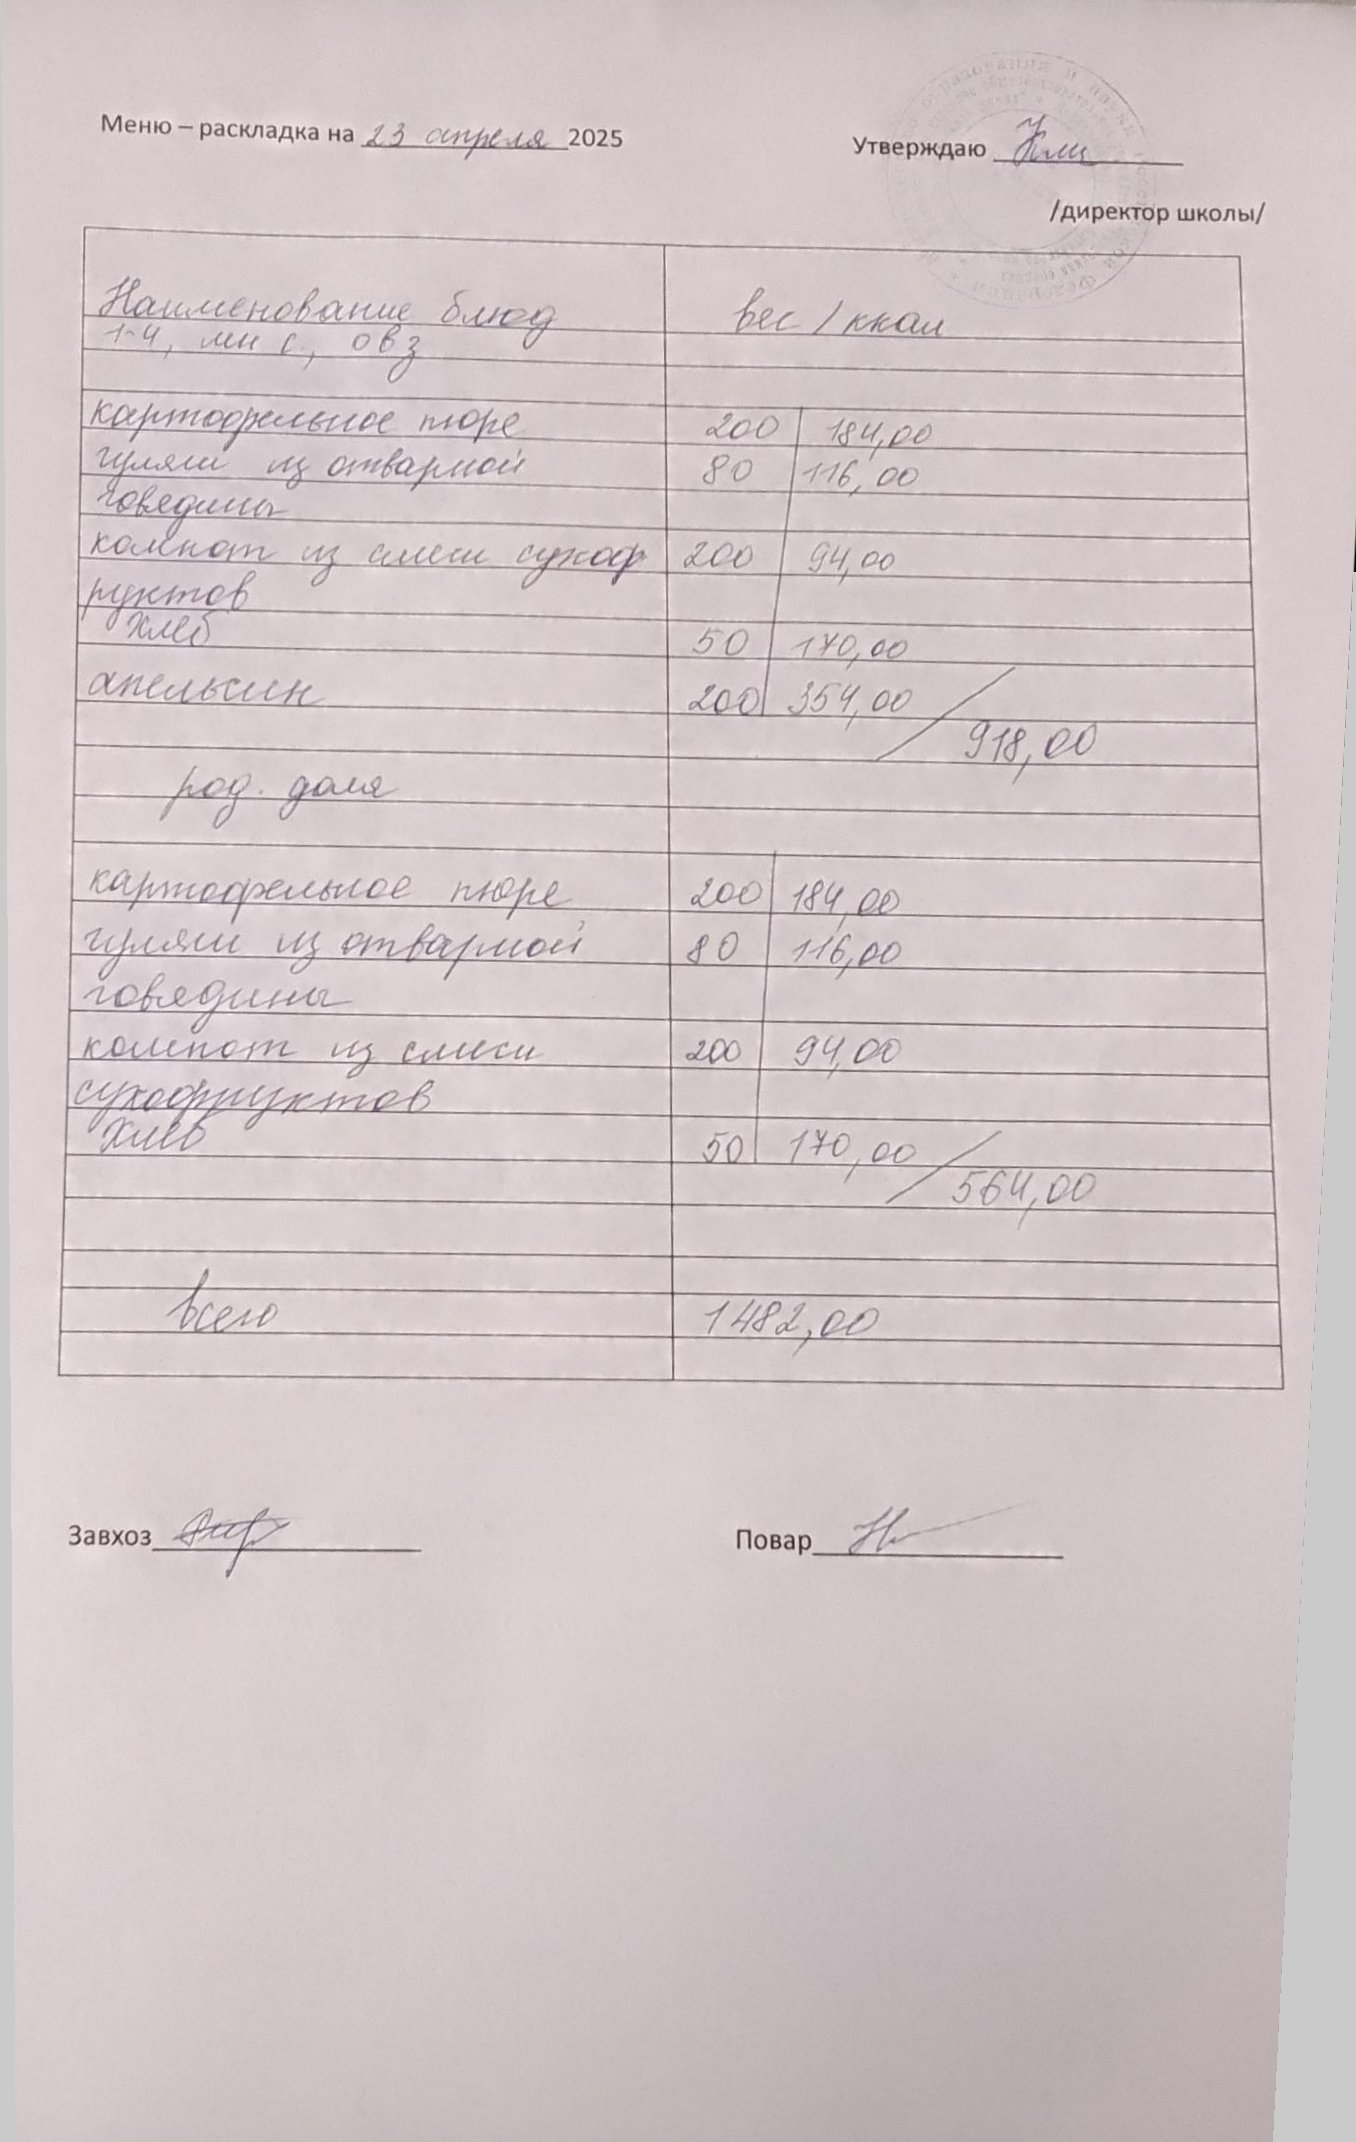 Меню – раскладка на 23 апреля 2025
Утверждаю
/директор школы/
Наименование блюд вес / ккал
1-4, мн с, овз
картофельное пюре 200 184,00
гуляш из отварной 80 116,00
говядины
компот из смеси сухоф 200 94,00
руктов
хлеб 50 170,00
апельсин 200 354,00
918,00
род. доля
картофельное пюре 200 184,00
гуляш из отварной 80 116,00
говядины
компот из смеси 200 94,00
сухофруктов
хлеб 50 170,00
564,00
всего 1482,00
Завхоз
Повар